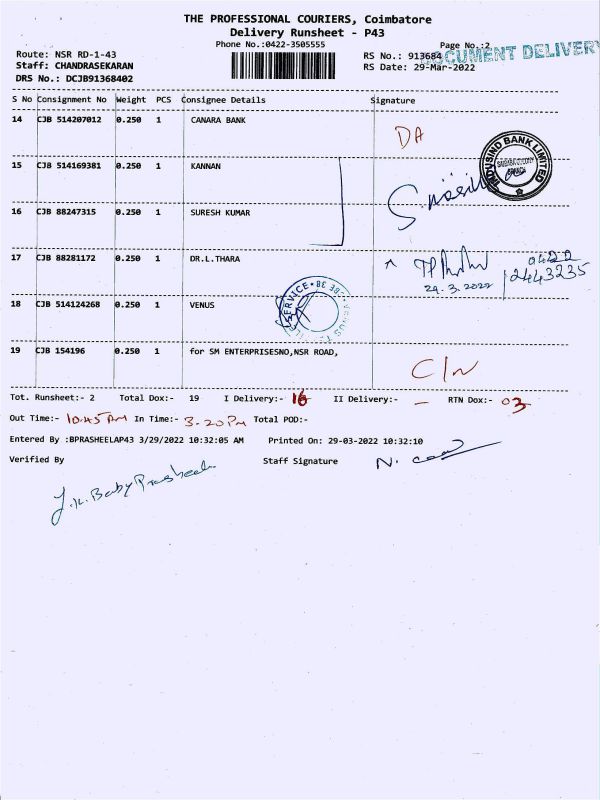 THE PROFESSIONAL COURIERS, Coimbatore
Delivery Runsheet - P43
Phone No.:0422-3505555
Page No.:2
DOCUMENT DELIVERY
Route: NSR RD-1-43
RS No.: 913684
Staff: CHANDRASEKARAN
RS Date: 29-Mar-2022
DRS No.: DCJB91368402
S No Consignment No Weight PCS Consignee Details Signature
14 CJB 514207012 0.250 1 CANARA BANK
DA
INDUSIND BANK LIMITED
15 CJB 514169381 0.250 1 KANNAN
16 CJB 88247315 0.250 1 SURESH KUMAR
17 CJB 88281172 0.250 1 DR.L.THARA
0422
2443235
29.3.2022
SERVICE
18 CJB 514124268 0.250 1 VENUS
19 CJB 154196 0.250 1 for SM ENTERPRISESNO,NSR ROAD,
C/N
Tot. Runsheet:- 2 Total Dox:- 19 I Delivery:- 16 II Delivery:- — RTN Dox:- 03
Out Time:- 10.45 AM In Time:- 3.20 PM Total POD:-
Entered By :BPRASHEELAP43 3/29/2022 10:32:05 AM Printed On: 29-03-2022 10:32:10
Verified By Staff Signature